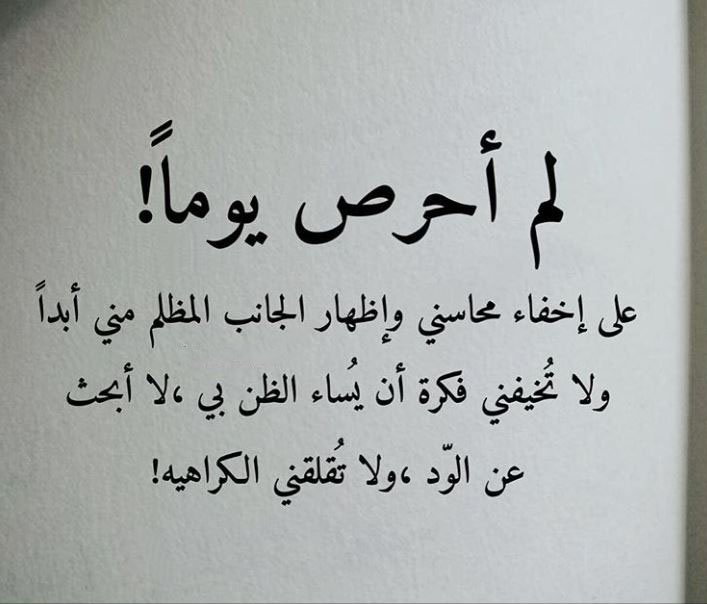 لم أحرص يوماً!
على إخفاء محاسني وإظهار الجانب المظلم مني أبداً
ولا تُخيفني فكرة أن يُساء الظن بي ،لا أبحث
عن الوّد ،ولا تُقلقني الكراهيه!